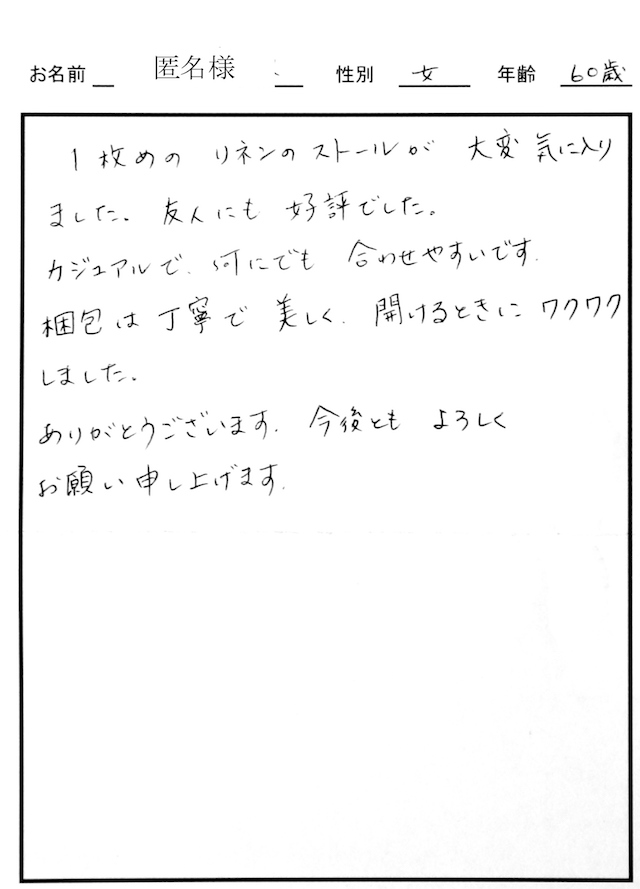 お名前 匿名様 性別 女 年齢 60歳
1枚めの リネンのストールが 大変 気に入り
ました。友人にも 好評でした。
カジュアルで、何にでも 合わせやすいです。
梱包は丁寧で 美しく、開けるときに ワクワク
しました。
ありがとうございます。今後とも よろしく
お願い申し上げます。